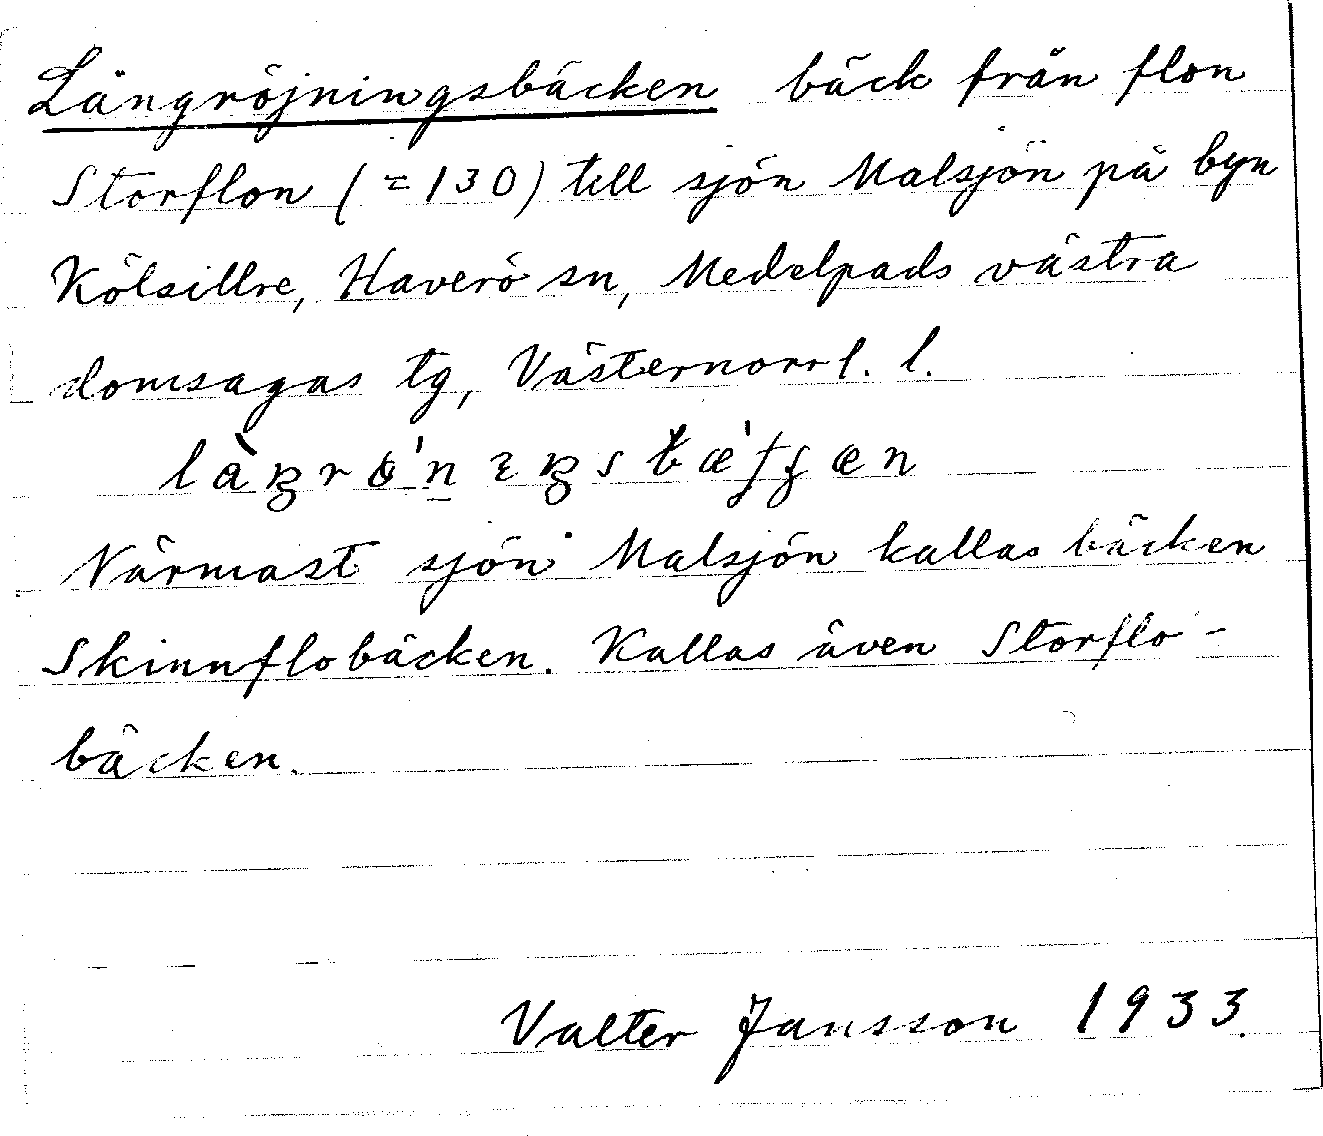 Långröjningsbäcken bäck från flon
Storflon (=130) till sjön Malsjön på byn
Kölsillre, Haverö sn, Medelpads västra
domsagas tg, Västernorrl. l.
Närmast sjön Malsjön kallas bäcken
Skinnflobäcken. Kallas även Storflo-
bäcken.
Valter Jansson 1933.